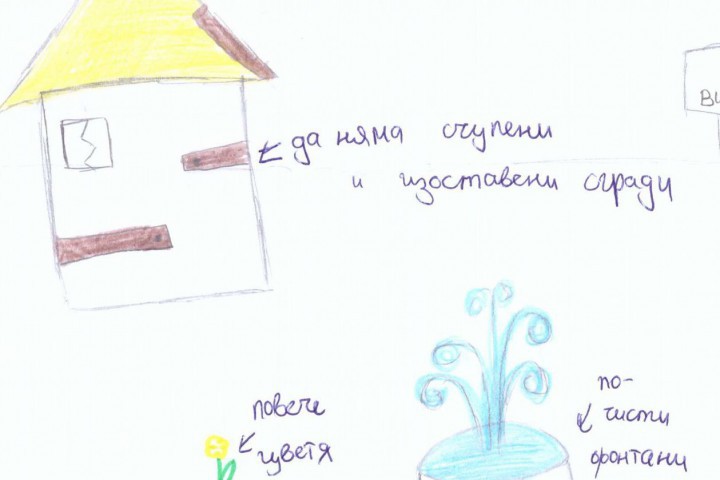 да няма счупени
и изоставени сгради
Ви
повече
цветя
по-
чисти
фонтани